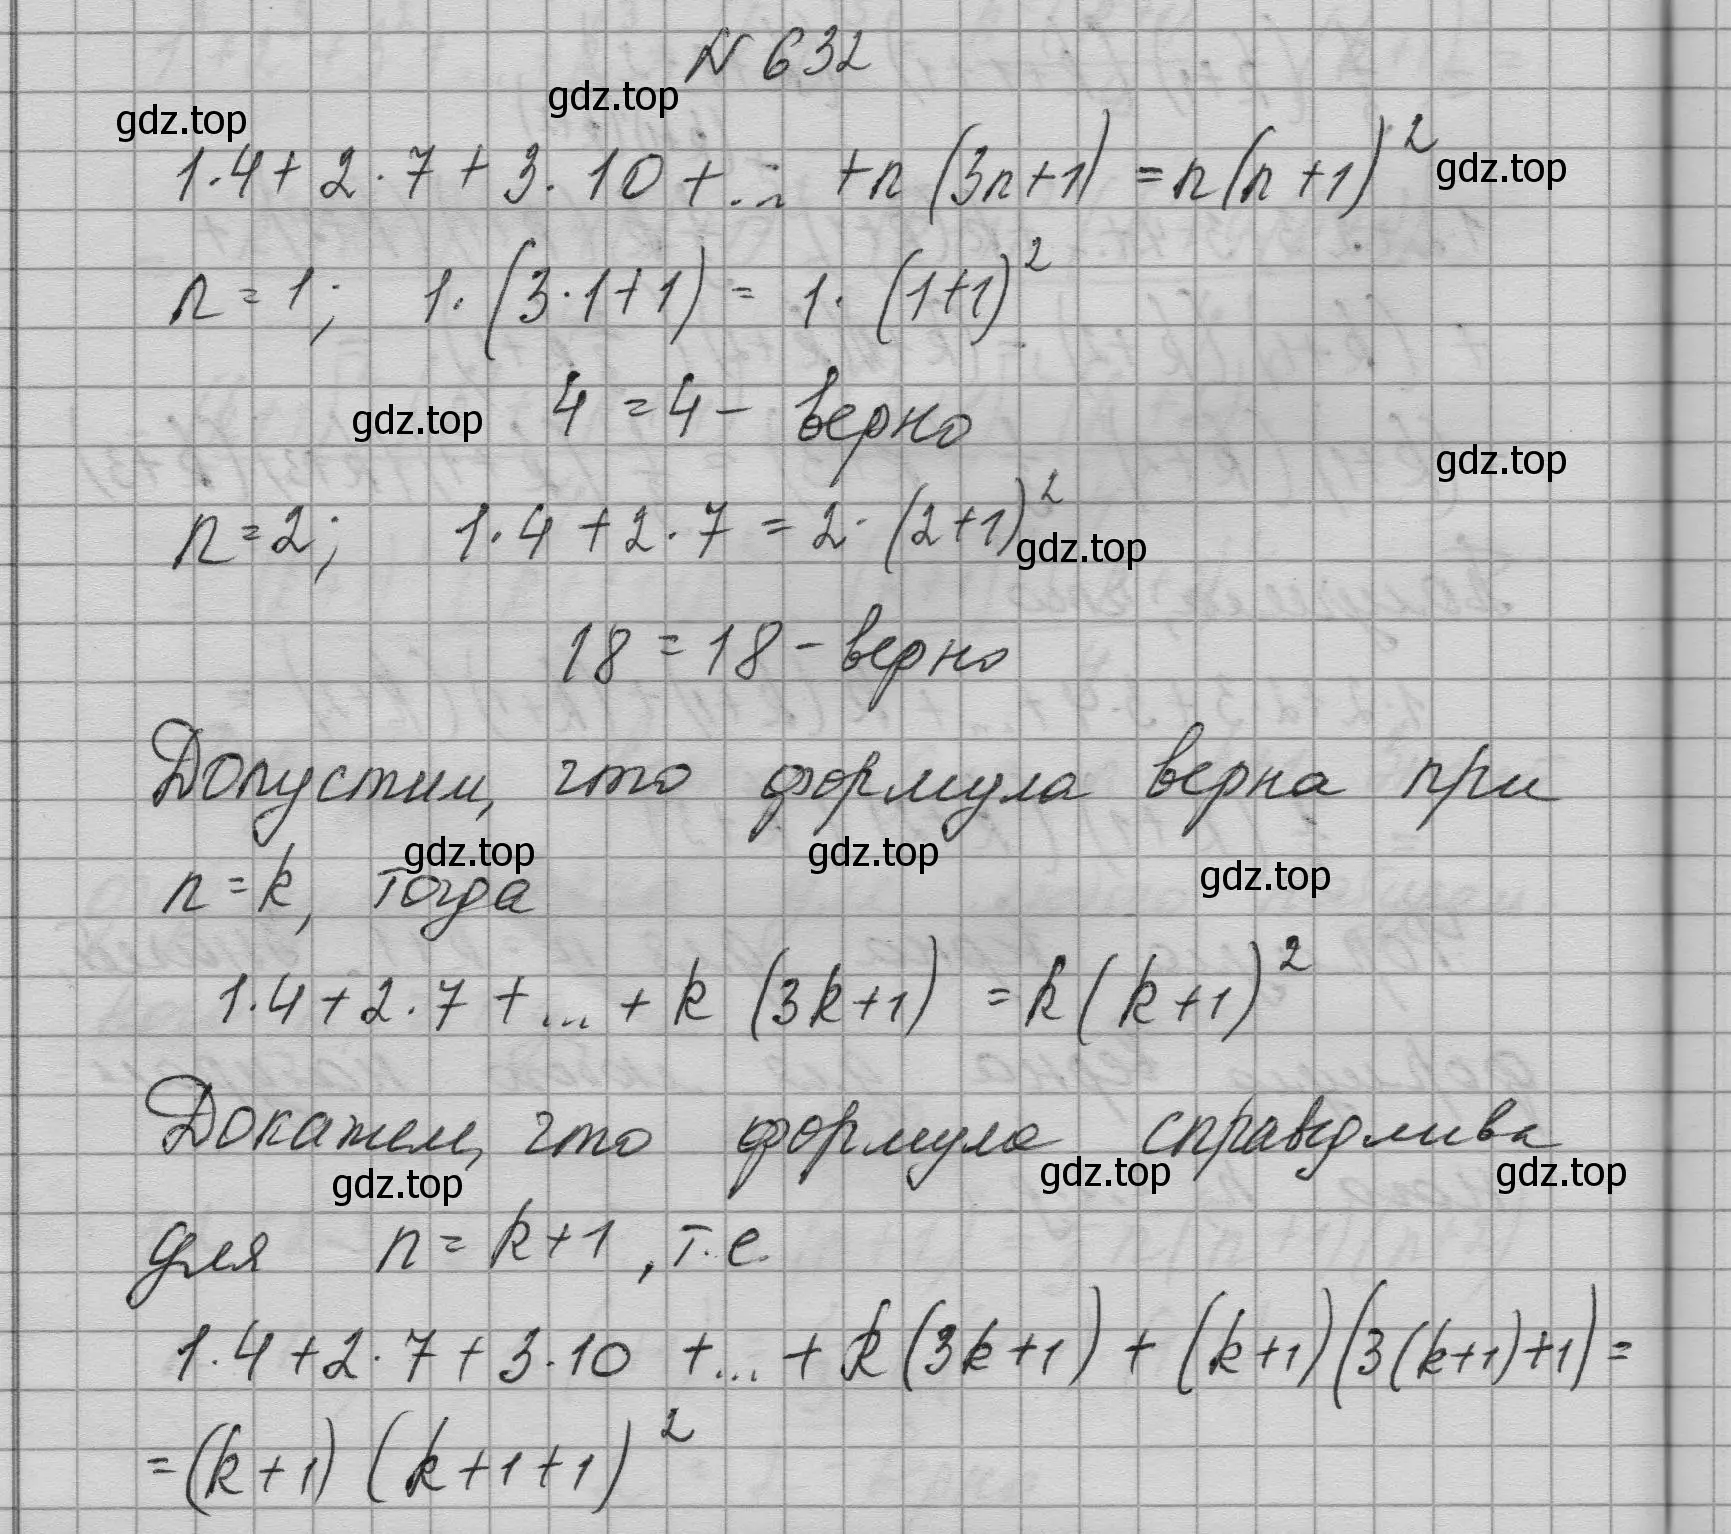 N 632
gdz.top gdz.top
1·4+2·7+3·10+... +n(3n+1)=n(n+1)² gdz.top
n=1; 1·(3·1+1)=1·(1+1)²
gdz.top 4=4- верно
gdz.top
n=2; 1·4+2·7=2·(2+1)² gdz.top
18=18-верно
Допустим, что формула верна при
gdz.top gdz.top gdz.top
n=k, тогда
1·4+2·7+...+k(3k+1)=k(k+1)²
Докажем, что формула справедлива
gdz.top gdz.top gdz.top
для n=k+1, т.е.
1·4+2·7+3·10+...+k(3k+1)+(k+1)(3(k+1)+1)=
=(k+1)(k+1+1)²